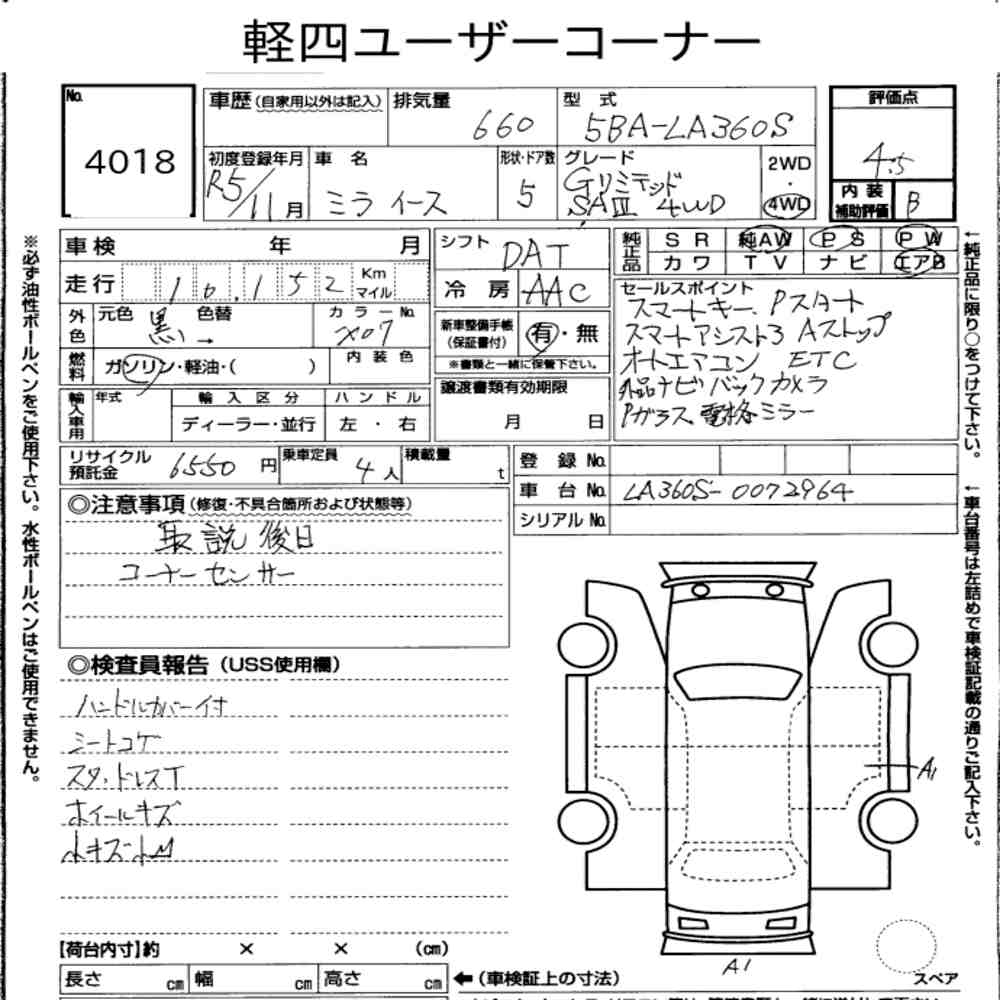 軽四ユーザーコーナー
No. 4018
車歴(自家用以外は記入) 排気量 660 型式 5BA-LA360S
評価点 4.5
初度登録年月 R5/11月 車名 ミライース 形状・ドア数 5 グレード Gリミテッド SAⅢ 4WD 2WD・4WD
内装補助評価 B
車検 年 月 シフト DAT
純正品 SR 純AW PS PW
カワ TV ナビ エアB
走行 16,152 Km マイル 冷房 AAC
外色 元色 黒 色替 → カラーNo. X07
新車整備手帳(保証書付) 有・無
※書類と一緒に保管下さい。
燃料 ガソリン・軽油・( ) 内装色
譲渡書類有効期限 月 日
輸入車用 年式 輸入区分 ディーラー・並行 ハンドル 左・右
セールスポイント
スマートキー. Pスタート
スマートアシスト3 Aストップ
オートエアコン ETC
外品ナビ バックカメラ
Pガラス 電格ミラー
リサイクル預託金 6550円 乗車定員 4人 積載量 t
登録No.
車台No. LA360S-0072964
シリアルNo.
◎注意事項(修復・不具合箇所および状態等)
取説後日
コーナーセンサー
◎検査員報告(USS使用欄)
ハンドルカバー付
シートコゲ
スタッドレスT
ホイールキズ
小キズ・小凹
A1
A1
スペア
【荷台内寸】約 × × (cm)
長さ cm 幅 cm 高さ cm ←(車検証上の寸法)
※必ず油性ボールペンをご使用下さい。水性ボールペンはご使用できません。
←純正品に限り○をつけて下さい。
←車台番号は左詰めで車検証記載の通りご記入下さい。